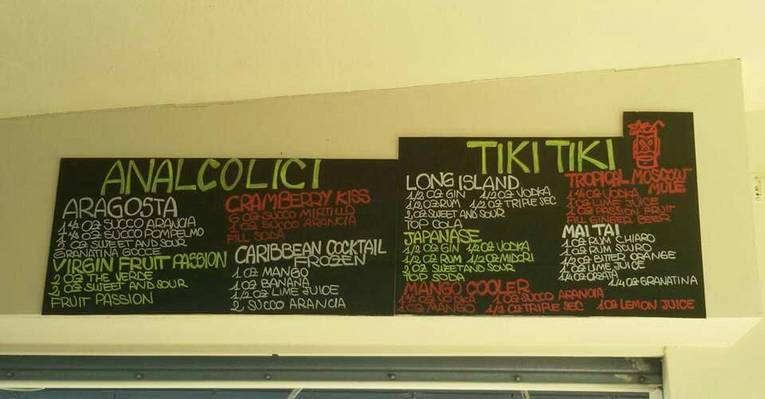 ANALCOLICI
ARAGOSTA
1 1/4 OZ SUCCO ARANCIA
1 1/4 OZ SUCCO POMPELMO
1 OZ SWEET AND SOUR
GRANATINA GOCCE
VIRGIN FRUIT PASSION
2 OZ THE VERDE
2 OZ SWEET AND SOUR
FRUIT PASSION
CRAMBERRY KISS
6 OZ SUCCO MIRTILLO
1 OZ SUCCO ARANCIA
FILL SODA
CARIBBEAN COCKTAIL
FROZEN
1 OZ MANGO
1 OZ BANANA
1/2 OZ LIME JUICE
2 SUCCO ARANCIA
TIKI TIKI
LONG ISLAND
1/2 OZ GIN 1/2 OZ VODKA
1/2 OZ RUM 1/2 OZ TRIPLE SEC
2 OZ SWEET AND SOUR
TOP COLA
JAPANASE
1/2 OZ GIN 1/2 OZ VODKA
1/2 OZ RUM 1/2 OZ MIDORI
2 OZ SWEET AND SOUR
TOP SODA
MANGO COOLER
1 1/4 OZ VODKA 1 OZ SUCCO ARANCIA
1 OZ MANGO 1/2 OZ TRIPLE SEC 1 OZ LEMON JUICE
TROPICAL MOSCOW
MULE
OZ VODKA
1 OZ LIME JUICE
1 OZ PASSION FRUIT
FILL GINGER BEER
MAI TAI
1 OZ RUM CHIARO
1 OZ RUM SCURO
1/2 OZ BITTER ORANGE
1 OZ LIME JUICE
1/4 OZ ORZATA 1/4 OZ GRANATINA